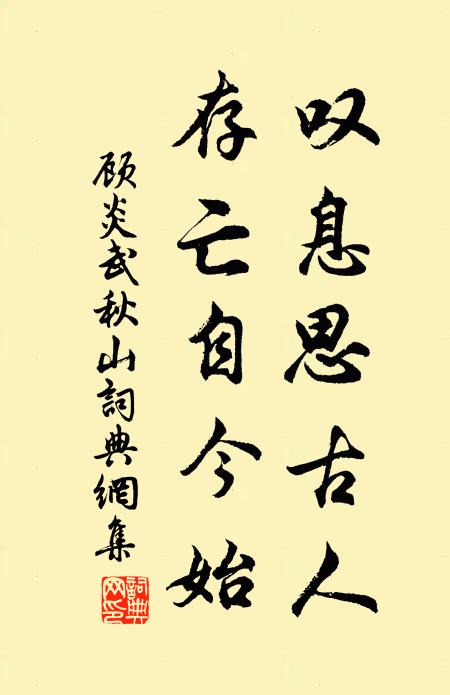 叹息思古人
存亡自今始
顾炎武秋山詞典網集
詞典网印